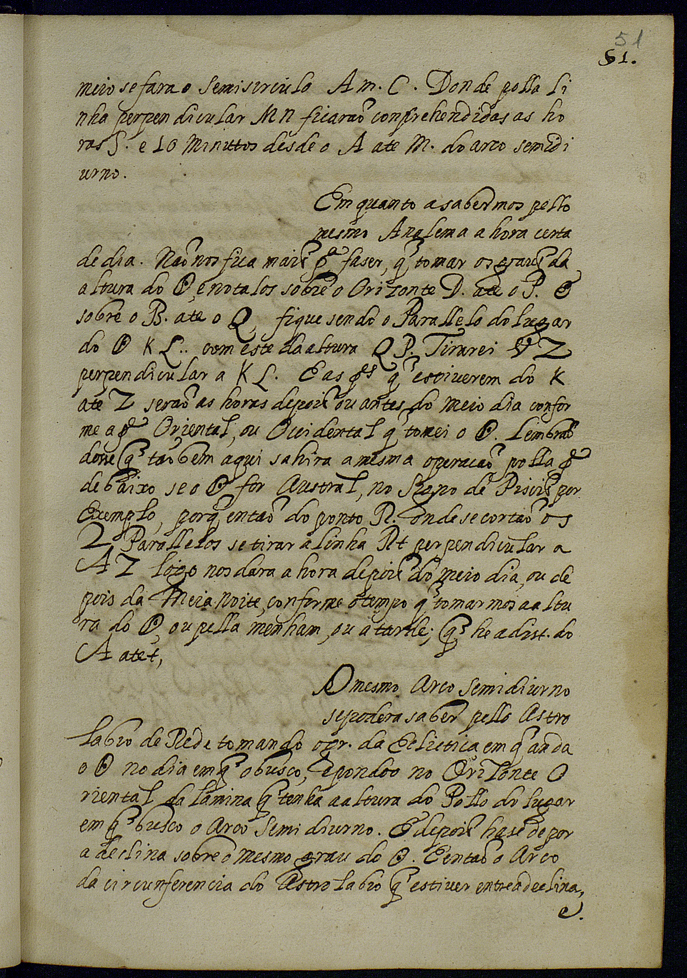 51
51.
meio se fara o Semisirculo A m. C. Donde polla li
nha perpendicular M N ficaraõ comprehendidas as ho
ras 5. e 10 Minutos desde o A ate M. do arco semidi
urno.
Em quanto a sabermos pello
mesmo Analema a hora certa
de dia. Naõ nos fica mais pa faser, q̃ tomar os graus da
altura do ☉, e notalos sobre o Orizonte D. ate o P. e
sobre o B. ate o Q, fique sendo o Parallelo do lugar
do ☉ K L. com este da altura Q P. Tirarei Z
perpendicular a K L. E as q̃ estiverem do K
ate Z seraõ as horas depois ou antes do meio dia confor
me a Oriental, ou Occidental q̃ tomei o ☉. Lembran
dome q̃ taõbem aqui sahira a mesma operacaõ polla
de baixo se o ☉ for Austral, no Signo de Piscis por
Exemplo, porq̃ entaõ do ponto R. onde se cortaõ os
2 Parallelos se tirar a linha R t perpendicular a
A Z logo nos dara a hora depois do meio dia, ou de
pois da Meia noite, conforme o tempo q̃ tomarmos a altu
ra do ☉, ou pella menham, ou a tarde; q̃ he a dist. do
A ate t,
O mesmo Arco Semidiurno
se podera saber pello Astro
labio de Rede tomando o gr. da Eclictica em q̃ anda
o ☉ no dia em q̃ o busco, e pondoo no Orizonte O
riental da lamina q̃ tenha a altura do Pollo do lugar
em q̃ busco o Arco Semidiurno. E depois hase de por
a declina sobre o mesmo grau do ☉. E entaõ o Arco
da circunferencia do Astrolabio q̃ estiver entre a declina,
e.